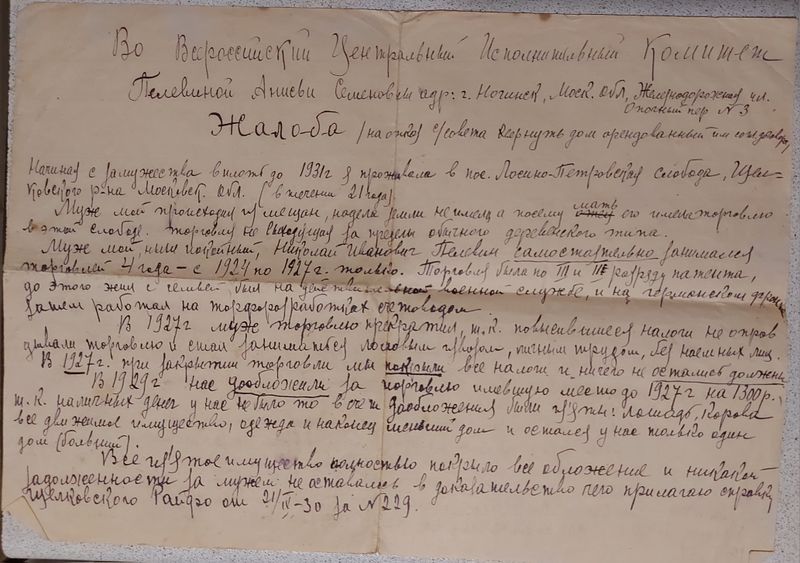 Во Всероссийский Центральный Исполнительный Комитет
Пелевиной Анисьи Семеновны адр: г. Ногинск, Моск. Обл, Железнодорожная ул.
пер № 3
Жалоба /на отказ с/совета вернуть дом арендованный им
Начиная с замужества вплоть до 1931г я проживала в пос. Лосино-Петровская слобода, Щел-
ковского р-на Московск. Обл. (в течении 21 года)
Муж мой происходил из мещан, надела земли не имел, а посему мать его имела торговлю
в этой слободе. Торговля не выходящая за пределы обычного деревенского типа.
Муж мой, ныне покойный, Николай Иванович Пелевин самостоятельно занимался
торговлей 4 года – с 1924 по 1927г. только. Торговля была по II и III разряду патента,
до этого жил с семьей, был на действительной военной службе, и на германском фронте
затем работал на торфоразработках счетоводом.
В 1927г муж торговлю прекратил, т.к. повысившиеся налоги не оправ
дывали торговлю и стал заниматься извозом, личным трудом, без наемных лиц.
В 1927г. при закрытии торговли мы покрыли все налоги и ничего не остались должны
В 1929г нас дообложили за торговлю имевшую место до 1927г на 1300р.
т.к. наличных денег у нас не было то в счет дообложения были взяты: лошадь, корова
все движимое имущество, одежда и наконец меньший дом и остался у нас только один
дом (больший).
Все взятое имущество полностью покрыло все обложение и никакой
задолженности за мужем не оставалось в доказательство чего прилагаю справку
Щелковского Райфо от 21/IX-30 за № 229.